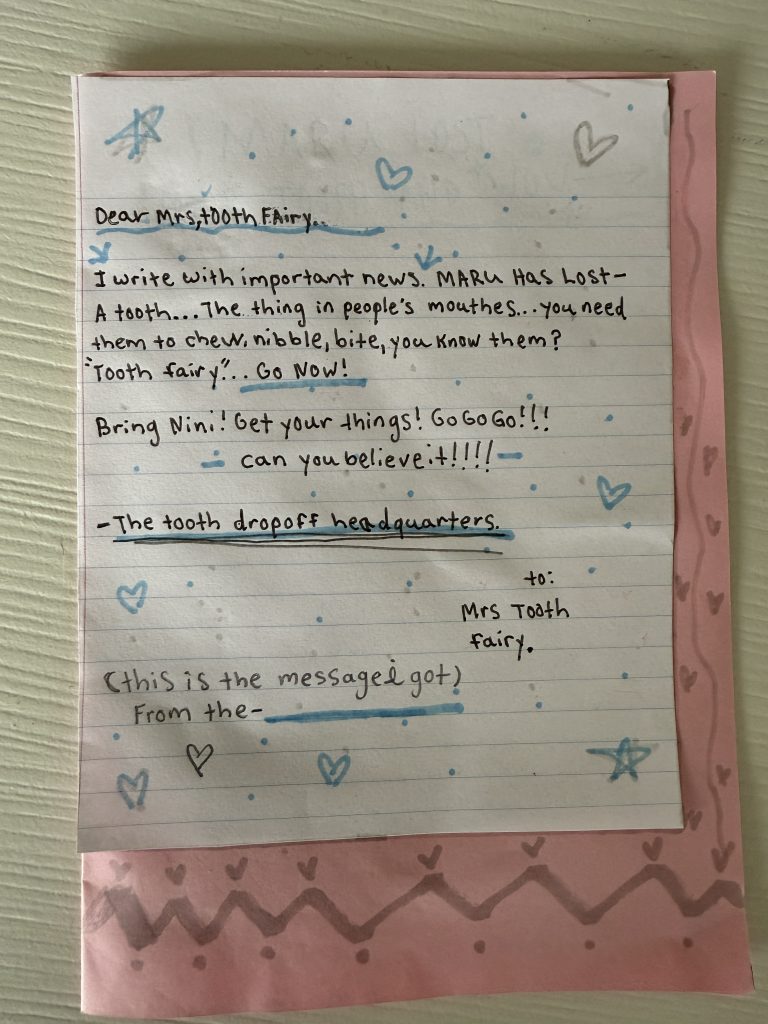 Dear Mrs, tooth FAiry..
I write with important news. MARU Has Lost-
A tooth... The thing in people's mouthes... you need
them to chew, nibble, bite, you know them?
"Tooth fairy".. Go Now!
Bring Nini! Get your things! GoGoGo!!!
can you believe it!!!!
-The tooth dropoff headquarters.
to:
Mrs Tooth
fairy.
(this is the message i got)
From the-